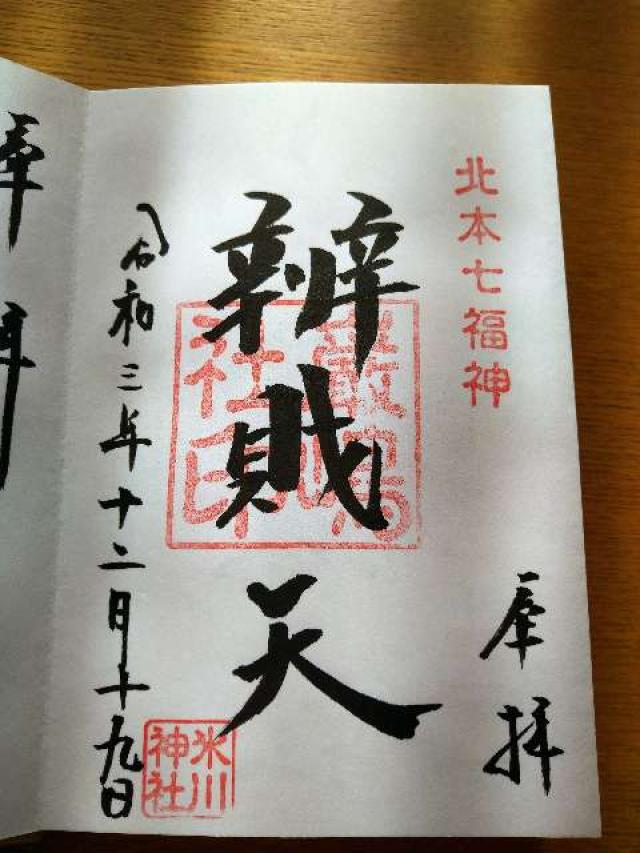 北本七福神
奉拝
辨財天
厳島社印
令和三年十二月十九日
氷川神社